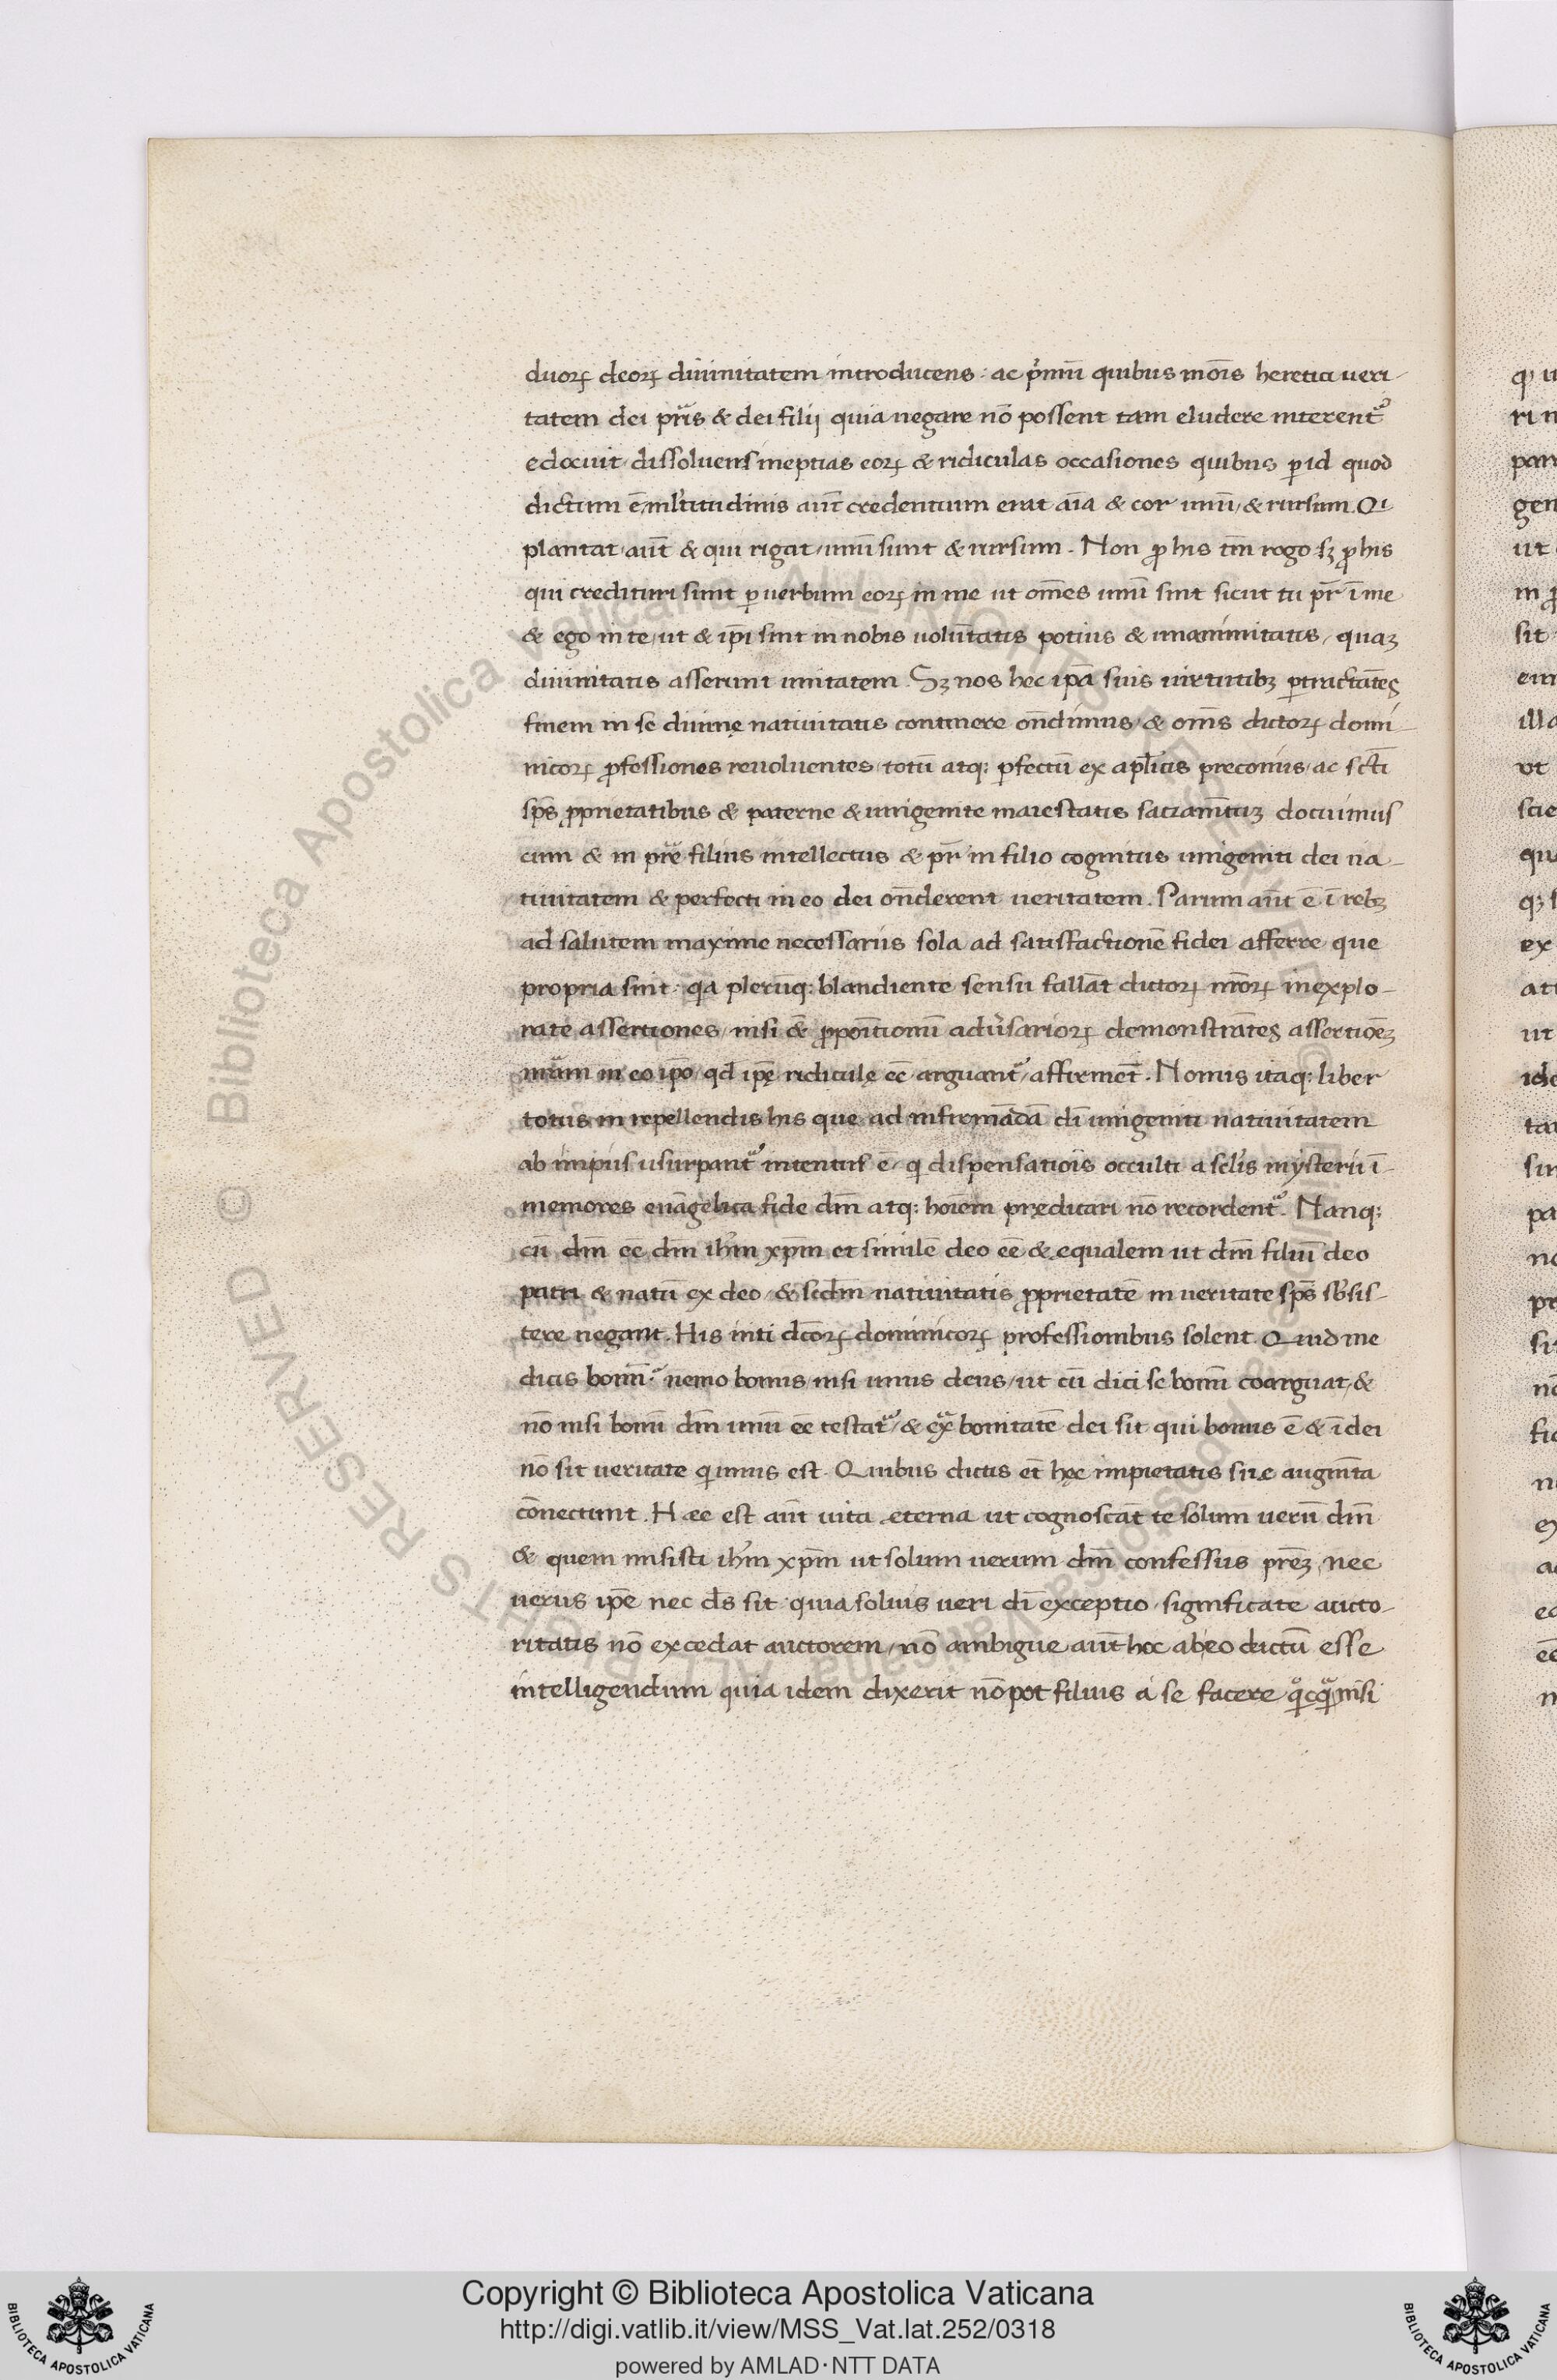 duoꝝ deoꝝ diuinitatem introducens: ac p̓mū quibus mōis heretici ueri-
tatem dei pr̄is & dei filij quia negare nō possent tam eludere niterent᷑
edocuit dissoluens ineptias eoꝝ & ridiculas occasiones quibus ꝑ id quod
dictum ē ml̓titudinis aūt credentium erat aīa & cor unū/ & rursum. Qi
plantat aūt & qui rigat/ unū sunt & rursum. Non ꝓ his tm̄ rogo sꝫ ꝓ his
qui credituri sunt ꝑ uerbum eoꝝ in me ut om̄es unū sint sicut tu pr̄ ī me
& ego in te/ ut & ip̄i sint in nobis uolūtatis potius & unanimitatis/ quaꝫ
diuinitatis asserunt unitatem. Sꝫ nos hec ip̄a suis uirtutibꝫ ꝑtractātes
finem in se diuinę natiuitatis continere on̄dimus/ & om̄s dictoꝝ domi-
nicoꝝ ꝓfessiones reuoluentes/ totū atq: ꝑfectū ex apl̓icis preconiis/ ac scti
sp̄s ꝓprietatibus & paterne & unigenite maiestatis sacram̄tuꝫ docuimus
cum & in pr̄e filius intellectus & pr̄ in filio cognitus unigeniti dei na-
tiuitatem & perfecti in eo dei on̄derent ueritatem. Parum aūt ē ī rebꝫ
ad salutem maxime necessariis sola ad satisfactionē fidei afferre que
propria sint: qa plerūq: blandiente sensu fallāt dictoꝝ nr̄oꝝ inexplo-
rate assertiones/ nisi & ꝓpoītionū adu̓sarioꝝ demonstrātes assertioēꝫ
nr̄am in eo ip̄o/ qd̄ ip̄ę ridiculę eē arguant᷑/ affirmēt. Nonus itaq: liber
totus in repellendis his que ad infirmādā dī unigeniti natiuitatem
ab impiis usurpant᷑ intentus ē/ q dispensatiōis occulti a sclis mysterii ī-
memores euāgelica fide dm̄ atq: hoīem prędicari nō recordent᷑. Nanq:
cū dm̄ eē dm̄ ihm̄ xpm̄ et similē deo eē & equalem ut dm̄ filiū deo
patri & natū ex deo/ & scdm̄ natiuitatis ꝓprietatē in ueritate sp̄s sb̓sis-
tere negant. His inti dc̄oꝝ dominicoꝝ professionibus solent. Quid me
dicis bonū: nemo bonus nisi unus deus/ ut cū dici se bonū coarguat/ &
nō nisi bonū dm̄ unū eē testat᷑/ & ex̄ bonitatē dei sit qui bonus ē & ī dei
nō sit ueritate q unus est. Quibus dictis et̄ hęc impietatis sue augm̄ta
cōnectunt. Hæc est aūt uita eterna ut cognoscāt te solum uerū dm̄
& quem misisti ihm̄ xpm̄ ut solum uerum dm̄ confessus pr̄eꝫ/ nec
uerus ip̄e nec ds̄ sit quia solius ueri dī exceptio significate aucto-
ritatis nō excedat auctorem/ nō ambigue aūt hoc ab eo dictū esse
intelligendum quia idem dixerit nō pot filius a se facere qc̄q nisi